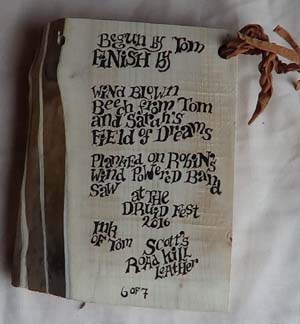 Begun by Tom
FiNiSH By
WiND BlowN
Beech from Tom
and Sarah's
FiElD of Dreams
Planked on Robin's
Wind PoweReD Band
Saw
at THE
DRUiD FEst
2016
iNk
of Tom
Scott's
RoaD Kill
LeatHer
6 of 7